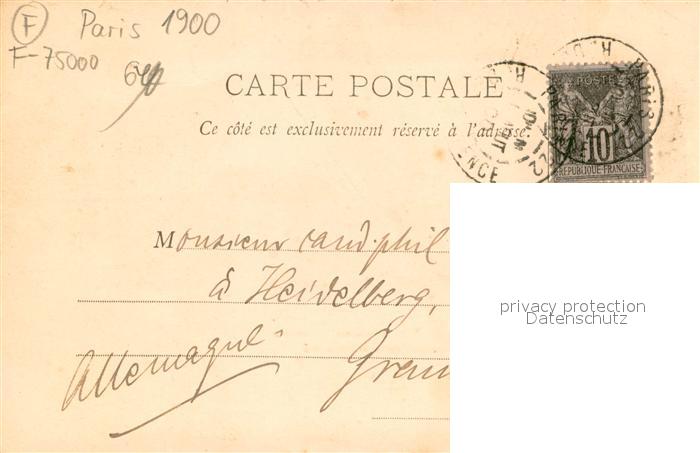 F Paris 1900
F-75000
CARTE POSTALE
Ce côté est exclusivement réservé à l'adresse.
POSTE
10
REPUBLIQUE FRANÇAISE
PARIS
Monsieur cand. phil
à Heidelberg,
Allemagne
privacy protection
Datenschutz